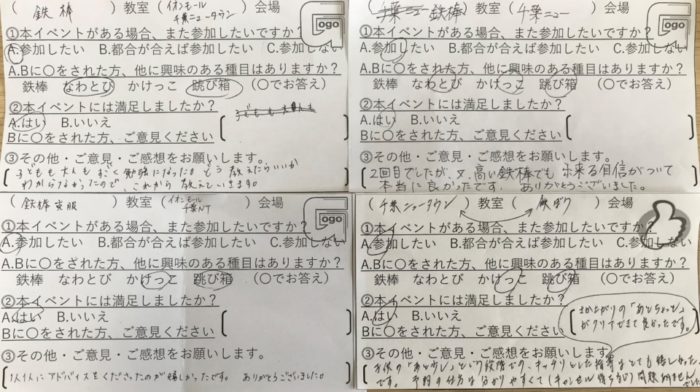 ( 鉄棒 )教室( イオンモール 千葉ニュータウン )会場
①本イベントがある場合、また参加したいですか?
A.参加したい B.都合が合えば参加 C.参加しない
A.Bに〇をされた方、他に興味のある種目はありますか?
鉄棒 なわとび かけっこ 跳び箱 (〇でお答え)
②本イベントには満足しましたか?
A.はい B.いいえ
Bに〇をされた方、ご意見ください
③その他・ご意見・ご感想をお願いします。
子どもも大人もすごく勉強になった。どう教えたらいいか
わからなかったので、これから教えていきます。
( 鉄棒 )教室( 千葉ニュー )会場
①本イベントがある場合、また参加したいですか?
A.参加したい B.都合が合えば参加 C.参加しない
A.Bに〇をされた方、他に興味のある種目はありますか?
鉄棒 なわとび かけっこ 跳び箱 (〇でお答え)
②本イベントには満足しましたか?
A.はい B.いいえ
Bに〇をされた方、ご意見ください
③その他・ご意見・ご感想をお願いします。
2回目でしたが、又、高い鉄棒でも出来る自信がついて
本当に良かったです。ありがとうございました。
( 鉄棒克服 )教室( イオンモール 千葉NT )会場
①本イベントがある場合、また参加したいですか?
A.参加したい B.都合が合えば参加 C.参加しない
A.Bに〇をされた方、他に興味のある種目はありますか?
鉄棒 なわとび かけっこ 跳び箱 (〇でお答え)
②本イベントには満足しましたか?
A.はい B.いいえ
Bに〇をされた方、ご意見ください
③その他・ご意見・ご感想をお願いします。
1人1人にアドバイスをくださったのが嬉しかったです。ありがとうございました。
( 千葉ニュータウン )教室( 鉄ぼう )会場
①本イベントがある場合、また参加したいですか?
A.参加したい B.都合が合えば参加 C.参加しない
A.Bに〇をされた方、他に興味のある種目はありますか?
鉄棒 なわとび かけっこ 跳び箱 (〇でお答え)
②本イベントには満足しましたか?
A.はい B.いいえ
Bに〇をされた方、ご意見ください
さかあがりの「あとちょっと」
がクリアできて良かったです。
③その他・ご意見・ご感想をお願いします。